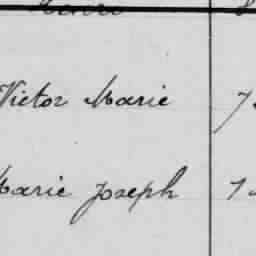 Victor Marie 7
Marie Joseph 7